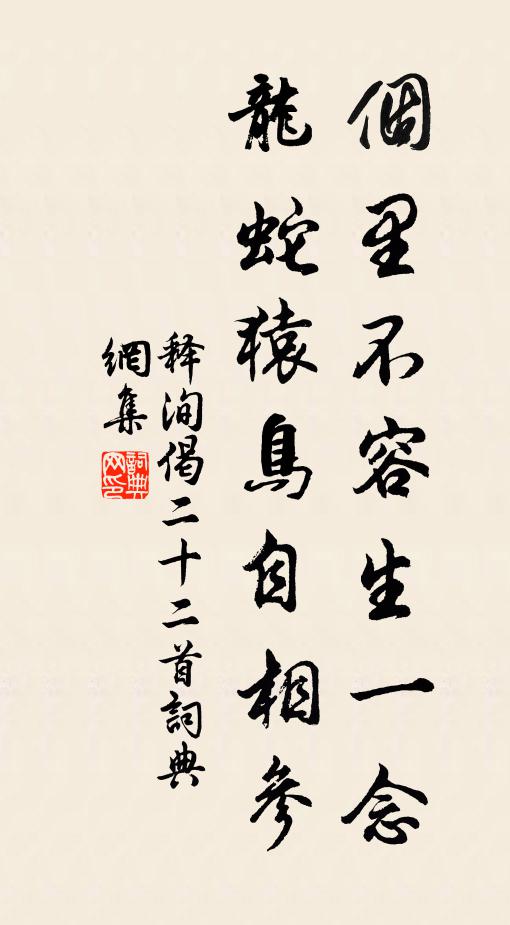 個里不容生一念
龍蛇猿鳥自相參
释洵偈二十二首詞典
網集
詞典網印